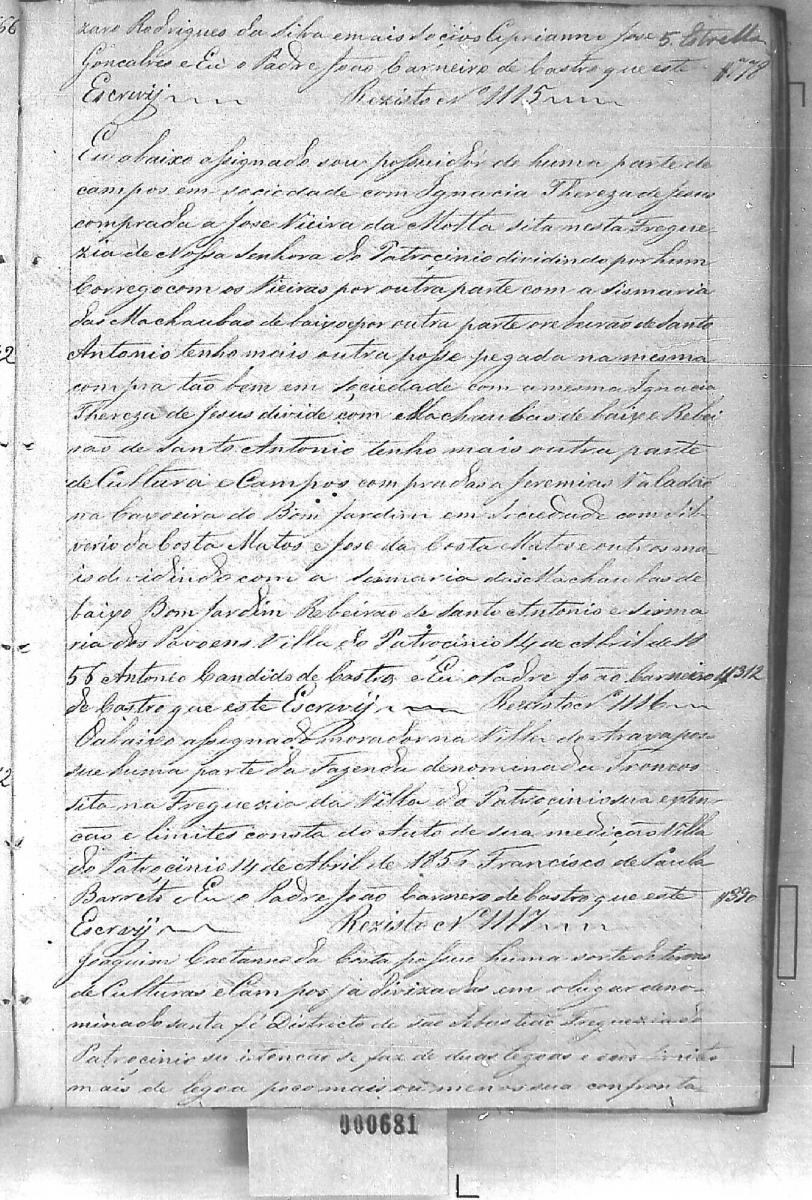 zaro Rodrigues da Silva emais Socios Ciprianno Jose 5. Estrella
Goncalves e Eu o Padre João Carneiro de Castro que este
Escrevij Rezisto Nº 1115
Eu abaixo assignado sou possuidor de huma parte de
campos em sociedade com Ignacia Thereza de Jesus
comprada a Jose Vieira da Motta sita nesta Fregue
zia de Nossa Senhora do Patrocinio dividindo por hum
Corrego com os Vieiras por outra parte com a Sismaria
das Machaubas de baixo epor outra parte o reburão de Santo
Antonio tenho mais outra posse pegada na mesma
compra tão bem em sociedade com a mesma Ignacia
Thereza de Jesus divide com Machaubas de baixe Rebei
rão de Santo Antonio tenho mais outra parte
de Cultura e Campos compradas a Jeremias Valadão
na Caxoeira do Bom Jardim em Sociedade com Sil
verio da Costa Matos e Jose da Costa Matos e outros ma
is dividindo com a sesmaria das Machaubas de
baixo Bom Jardim Rebeirão de Santo Antonio e Sisma
ria dos Pavoens Villa do Patrocinio 14 de Abril de 18
56 Antonio Candido de Castro e Eu o Padre João Carneiro 312
de Castro que este Escrevij Rezisto Nº 1116
O abaixo assignado morador na Villa do Araxa pos
sue huma parte da Fazenda denominada Troncos
sita na Freguezia da Villa do Patrocinio sua exten
cão e limites consta do Auto de sua medição Villa
do Patrocinio 14 de Abril de 1856 Francisco de Paula
Barreto e Eu o Padre João Carnero de Castro que este 390
Escrevij Rezisto Nº 1117
Joaquim Caetano da Costa possue huma sorte de terras
de Culturas e Campos já divizadas em o lugar deno-
minado Santa fé Districto de São Sebastião Freguezia do
Patrocinio su istencão se faz de duas legoas e seus limites
mais de legoa poco mais ou menos sua confronta
000681